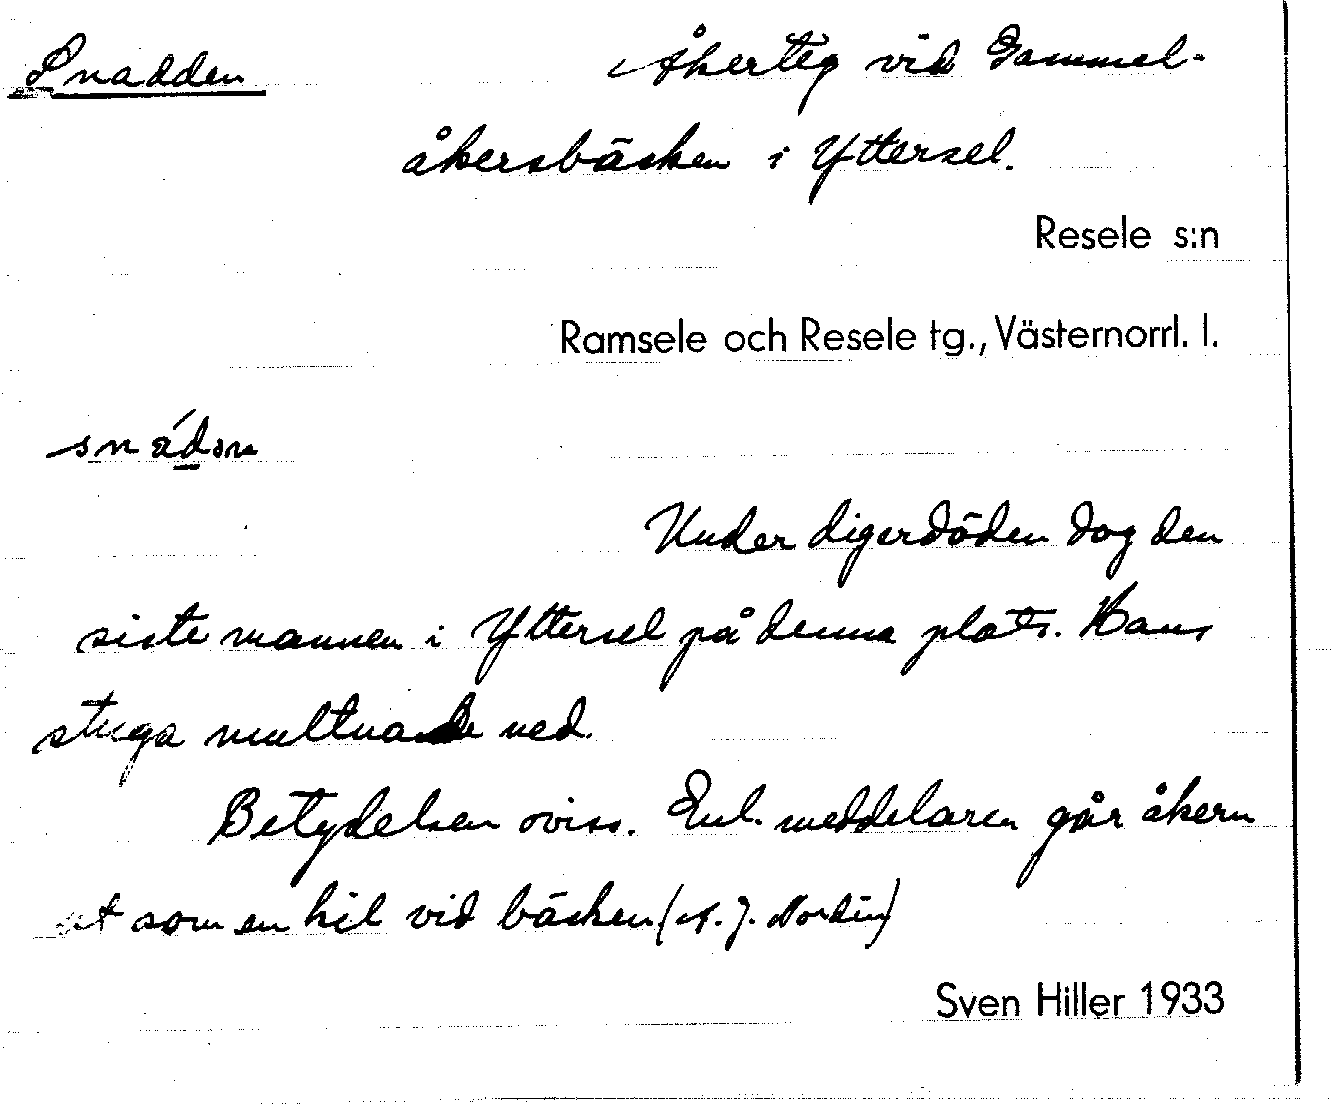 Snadden Åkerteg vid Gammel-
åkersbäcken i Yttersel.
Resele s:n
Ramsele och Resele tg., Västernorrl. l.
snádən
Under digerdöden dog den
siste mannen i Yttersel på denna plats. Hans
stuga multnade ned.
Betydelsen oviss. Enl. meddelaren går åkern
ut som en kil vid bäcken (A. J. Nordin)
Sven Hiller 1933